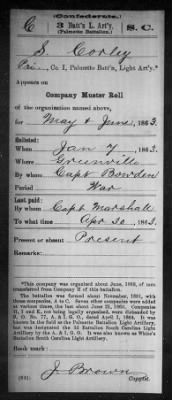 (Confederate.)
C 3 Batt'n L. Art'y. S. C.
(Palmetto Battalion.)
S. Corley
Pri., Co. I, Palmetto Batt'n, Light Art'y.*
Appears on
Company Muster Roll
of the organization named above,
for May & June, 1863.
Enlisted:
When Jan 7, 1863.
Where Greenville
By whom Capt Bowden
Period War
Last paid:
By whom Capt Marshall
To what time Apr 30, 1863.
Present or absent Present
Remarks:
*This company was organized about June, 1863, of men
transferred from Company E of this battalion.
The battalion was formed about November, 1861, with
three companies, A to C. Seven other companies were added
at various times, the last about June 21, 1863. Companies
H, I and K, not being legally organized, were disbanded by
S. O. No. 77, A. & I. G. O., dated April 1, 1864. It was
known in the field as the Palmetto Battalion Light Artillery,
but was designated the 3d Battalion South Carolina Light
Artillery by the A. & I. G. O. It was also known as White's
Battalion South Carolina Light Artillery.
Book mark:
J. Brown
Copyist.